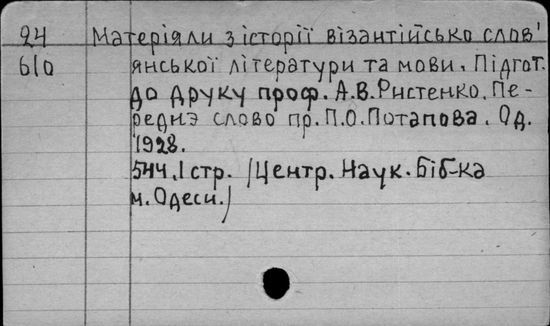 24 Матеріяли з історії візантійсько слов'
610 янської літератури та мови. Підгот.
до друку проф. А.В.Ристенко. Пе-
реднэ слово пр. П.О.Потапова. Од.
1928.
544,1 стр. /Центр. Наук. Біб-ка
м. Одеси./